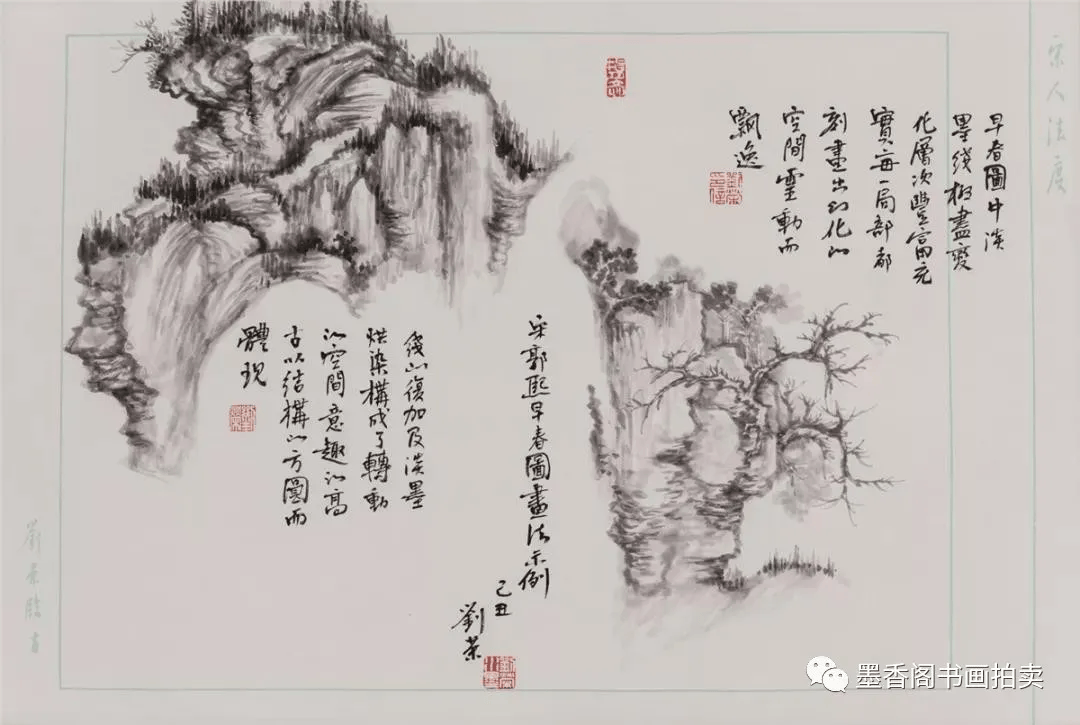 宋人法度
早春圖中淡
墨线极盡變
化層次豐富充
實每一局部都
刻畫出幻化的
空間靈動而
飄逸
宋郭熙早春圖畫法示例
己丑
劉荣
线的復加及淡墨
烘染構成了轉動
的空間意趣的高
古以结構的方圓而
體現
劉荣臨古
墨香阁书画拍卖